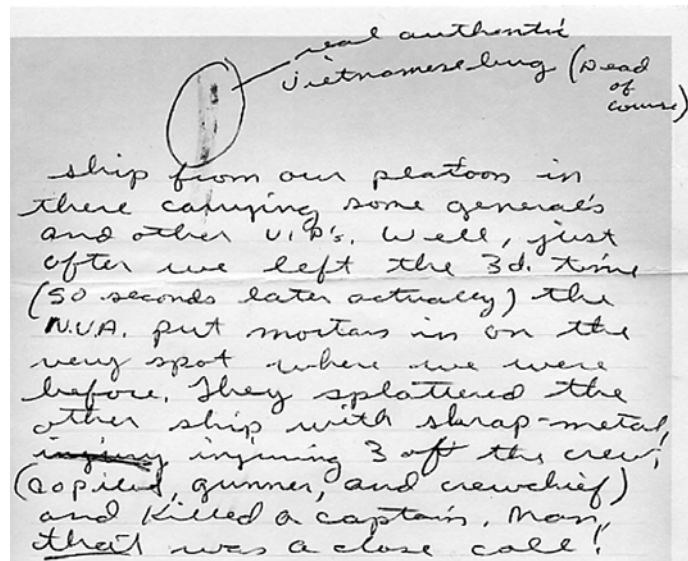 real authentic
Vietnamese bug (Dead
of
course)
ship from our platoon in
there carrying some general's
and other V.I.P's. Well, just
after we left the 3d. time
(50 seconds later actually) the
N.V.A. put mortars in on the
very spot where we were
before. They splattered the
other ship with skrap-metal,
injury injuring 3 of the crew,
(copilot, gunner, and crewchief)
and killed a captain. Man,
that was a close call!